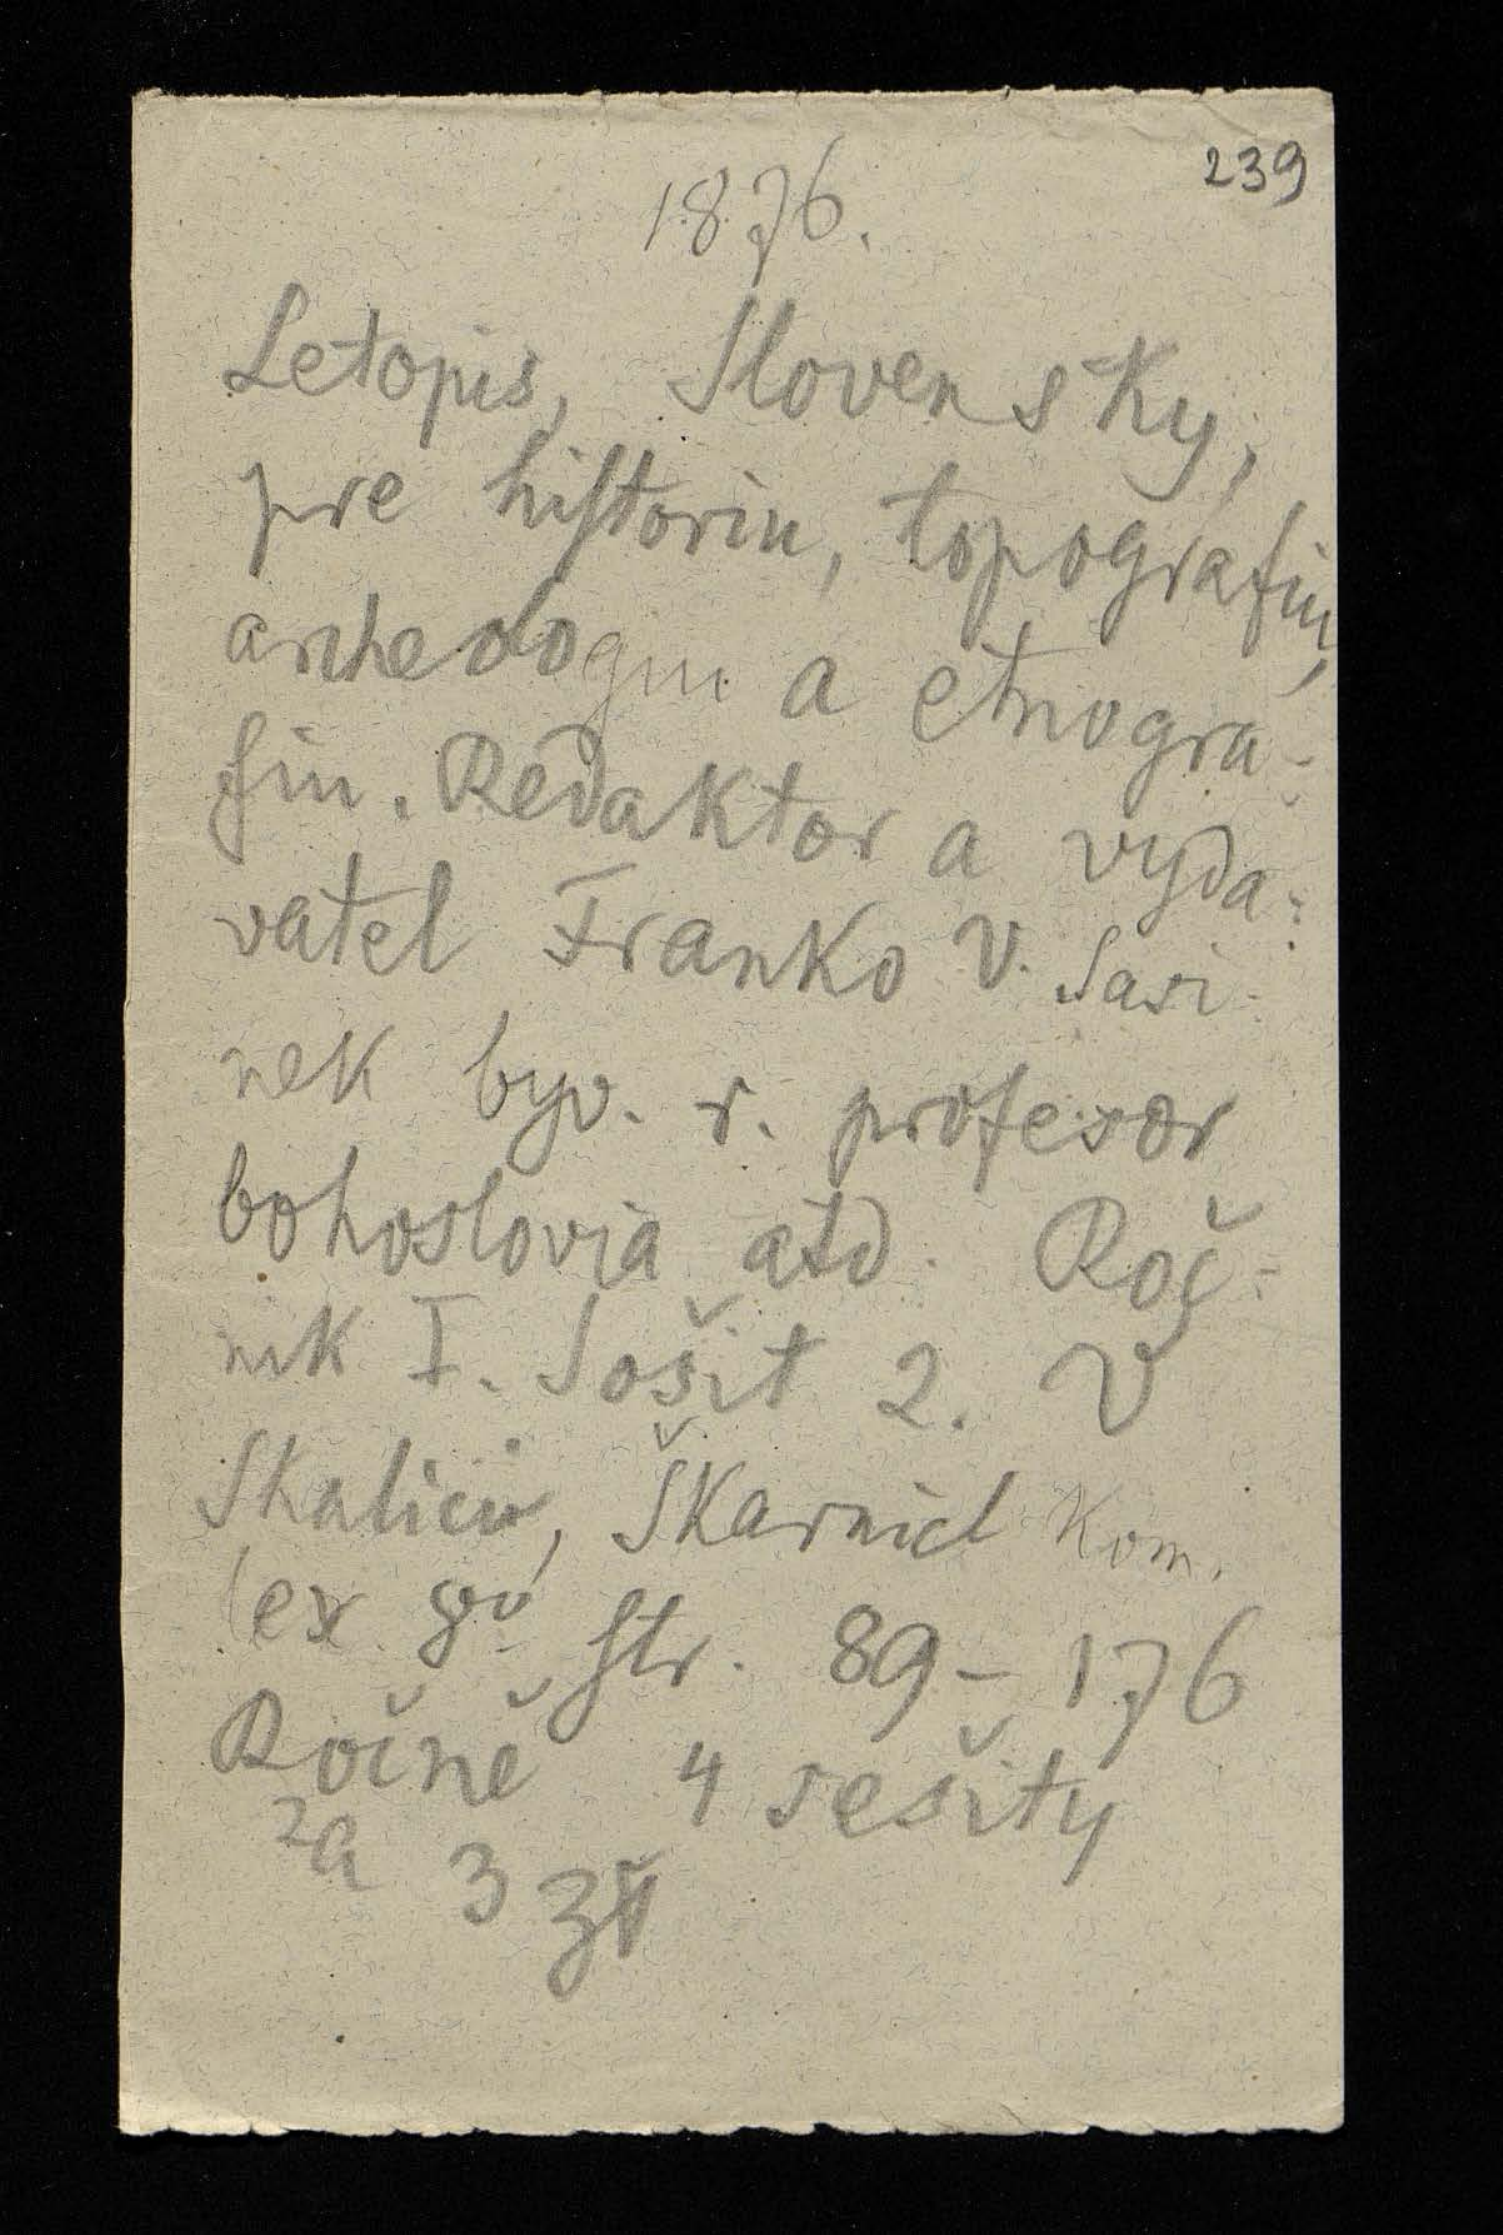 239
1876.
Letopis, Slovensky,
pre historiu, topografiu,
archeologiu a etnogra-
fiu. Redaktor a vyda-
vatel Franko V. Sasi-
nek byv. r. profesor
bohoslovia atd. Roč-
nik I. Sošit 2. V
Skalici, Škarnicl Kom.
lex 8º, str. 89-176
Ročně 4 sešity
za 3 zł